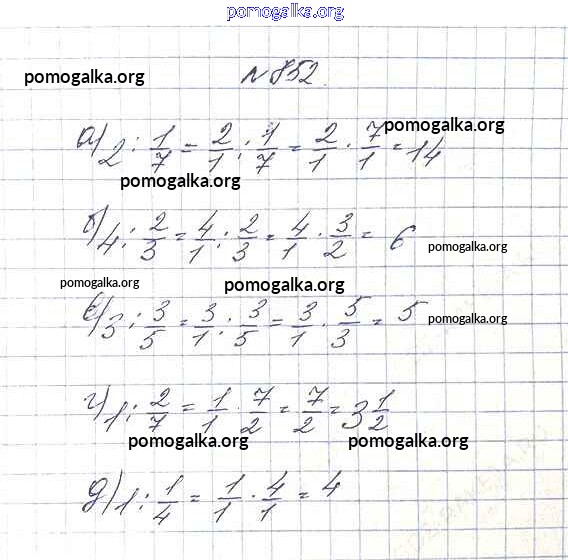 pomogalka.org
pomogalka.org
№ 852.
pomogalka.org
а) 2 : 1/7 = 2/1 : 1/7 = 2/1 · 7/1 = 14
pomogalka.org
б) 4 : 2/3 = 4/1 : 2/3 = 4/1 · 3/2 = 6
pomogalka.org
pomogalka.org
pomogalka.org
в) 3 : 3/5 = 3/1 : 3/5 = 3/1 · 5/3 = 5
pomogalka.org
г) 1 : 2/7 = 1/1 · 7/2 = 7/2 = 3 1/2
pomogalka.org
pomogalka.org
д) 1 : 1/4 = 1/1 · 4/1 = 4